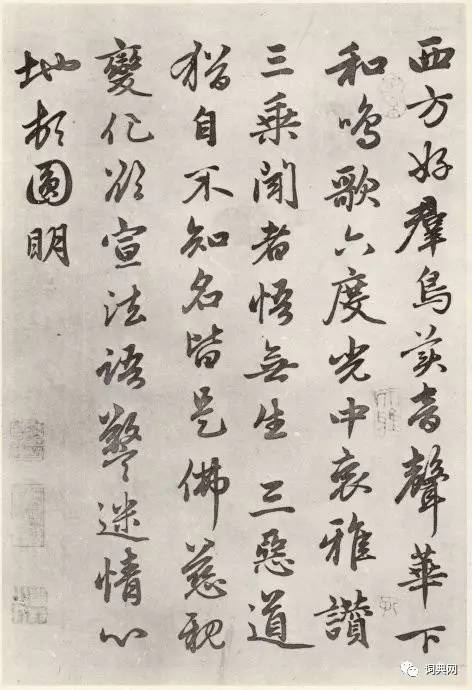 西方好羣鳥美音聲華下
和鳴歌六度光中哀雅讚
三乘聞者悟無生 三惡道
猶自不知名皆是佛慈親
變化欲宣法語警迷情心
地頓圓明
词典网